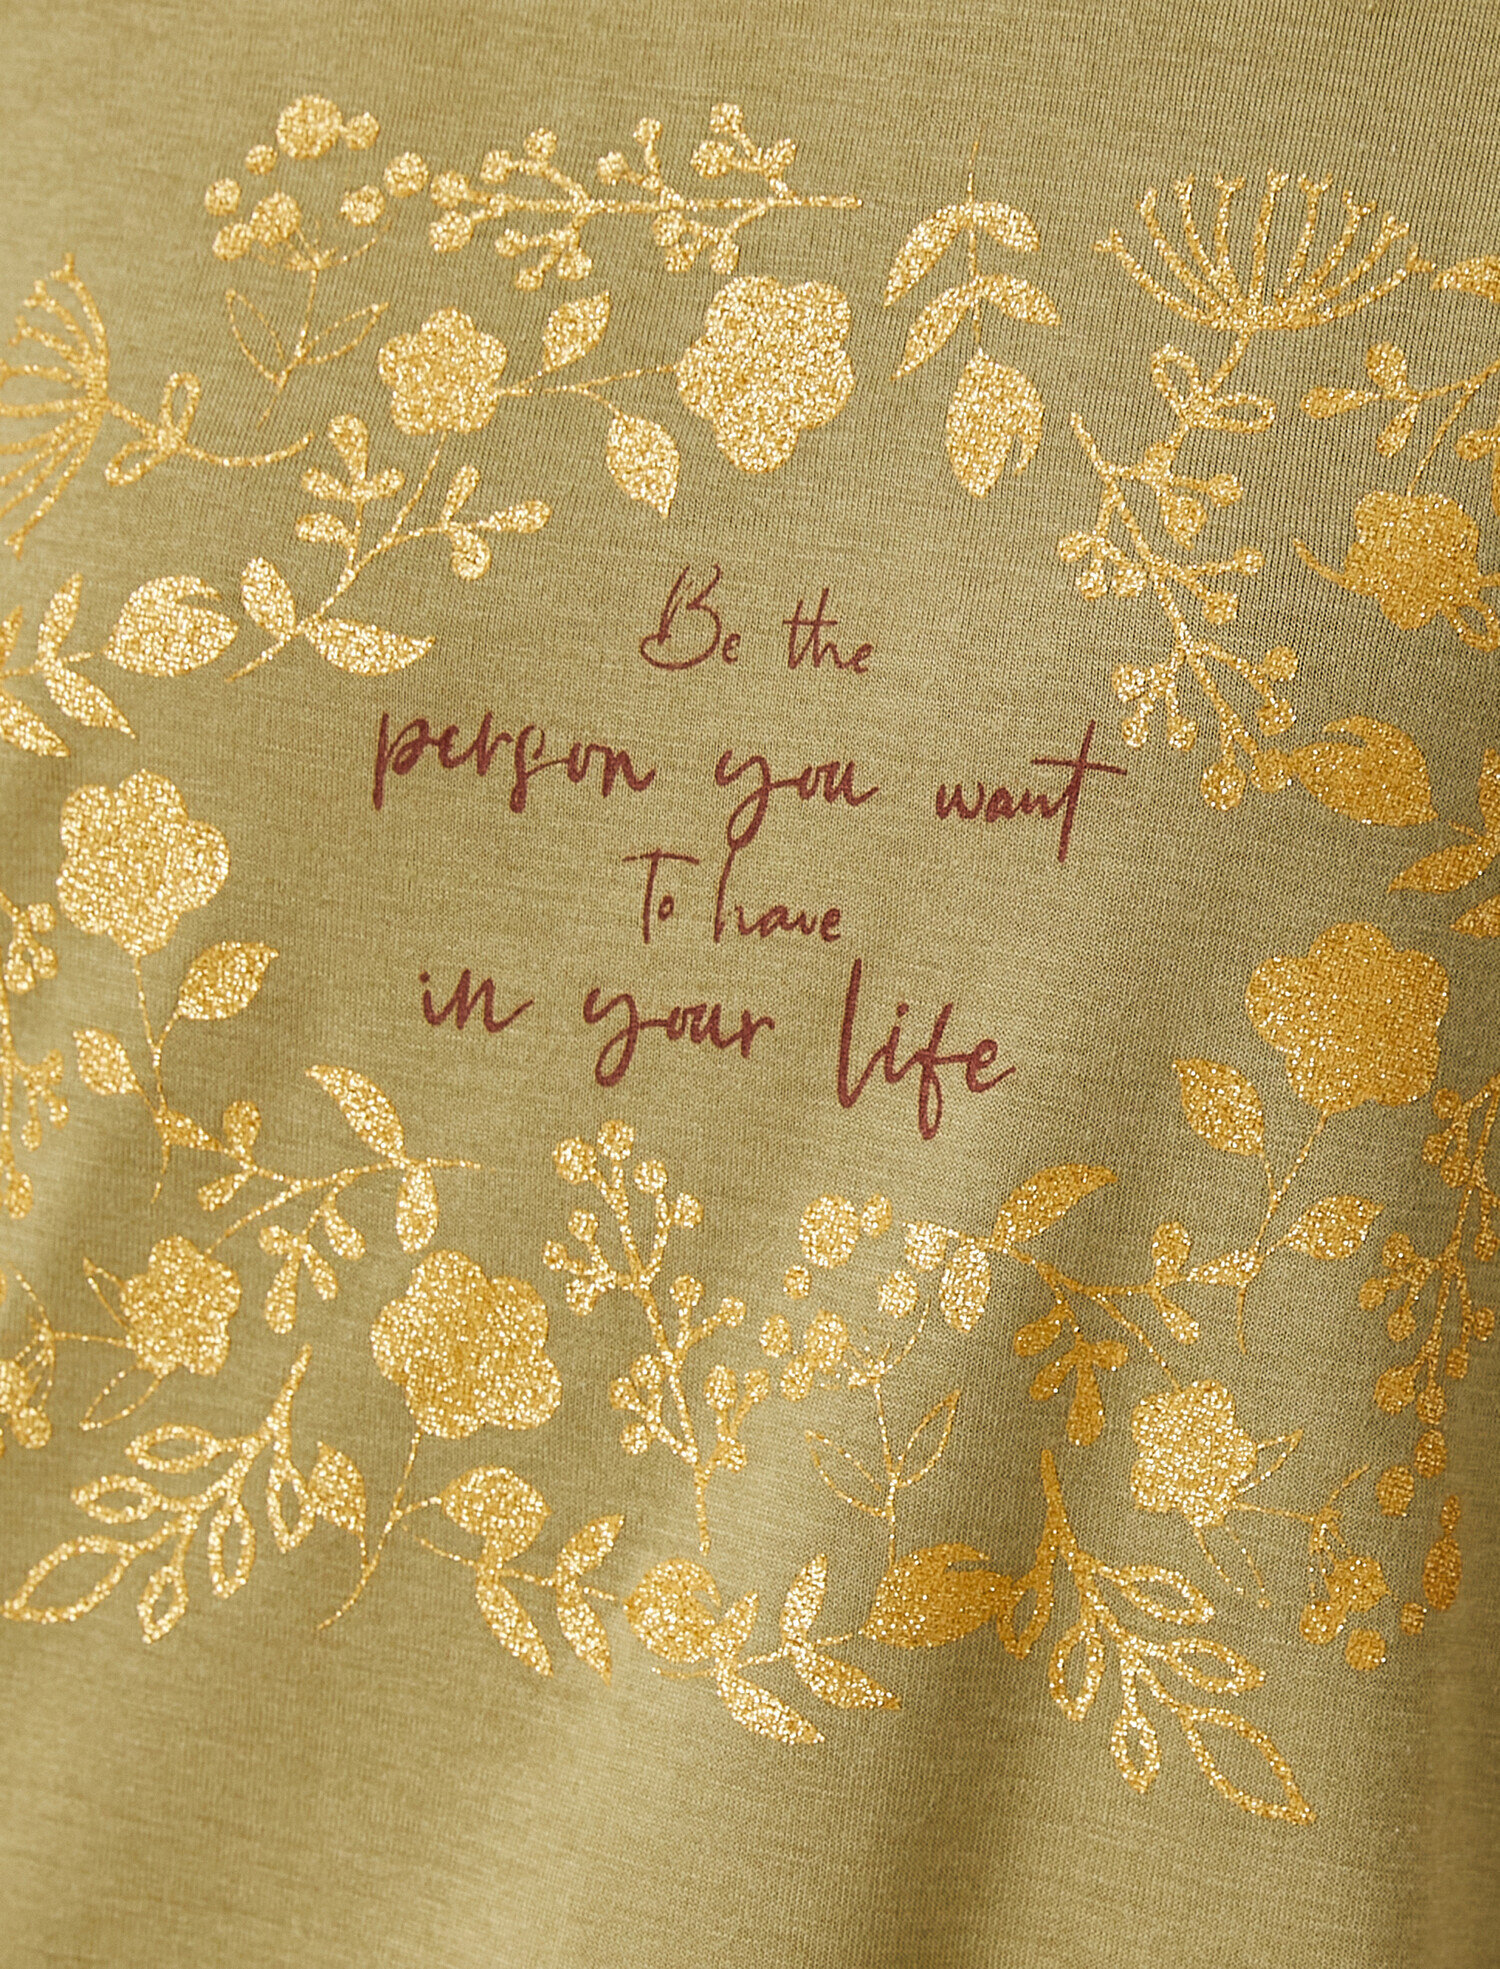 Be the
person you want
To have
in your life